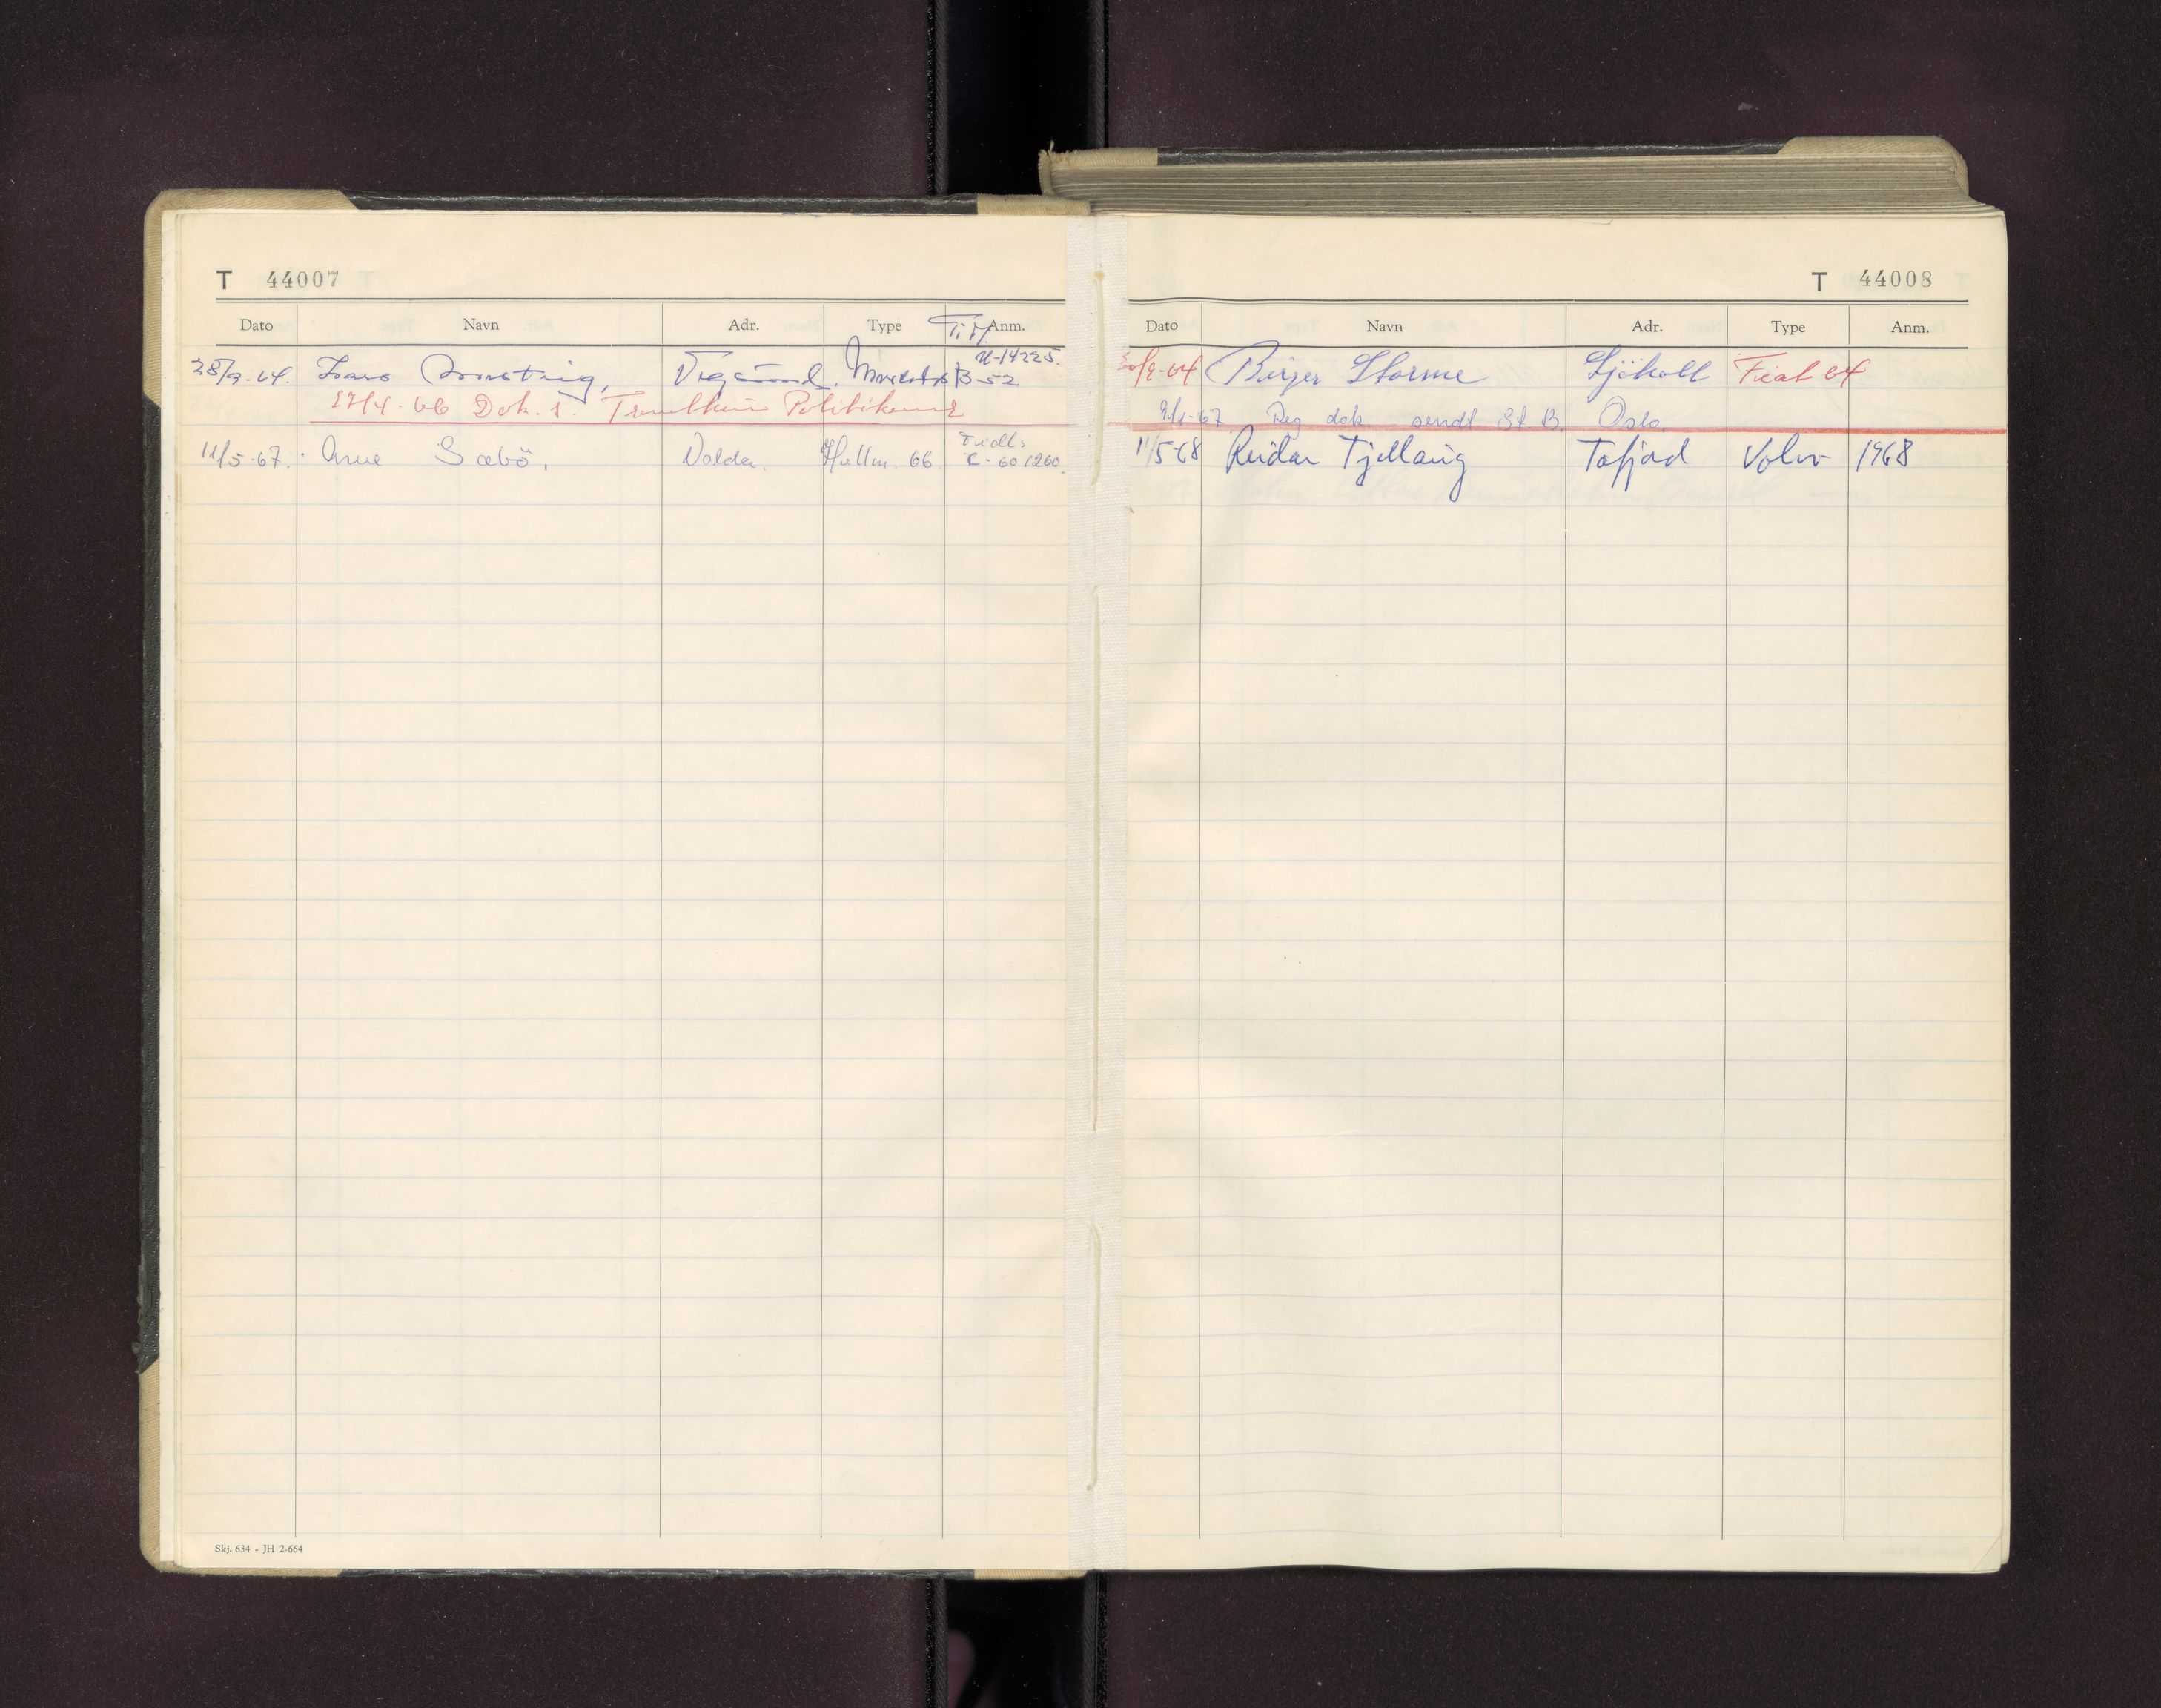 T 44007
Dato Navn Adr. Type Anm.
28/9-64. Lars Vigsund. B-52
U-14225.
27/4-66 Dok. s. Politikammer
11/5-67. Arne Sæbö, Volda. Hillm. 66 Tidl: C-601260.
Skj. 634 - JH 2-664
T 44008
Dato Navn Adr. Type Anm.
30/9-64 Birger Storme Sjöholt Fiat 64
9/1-67 Reg dok sendt St B Oslo.
11/5-68 Reidar Tjellaug Tafjord Volvo 1968